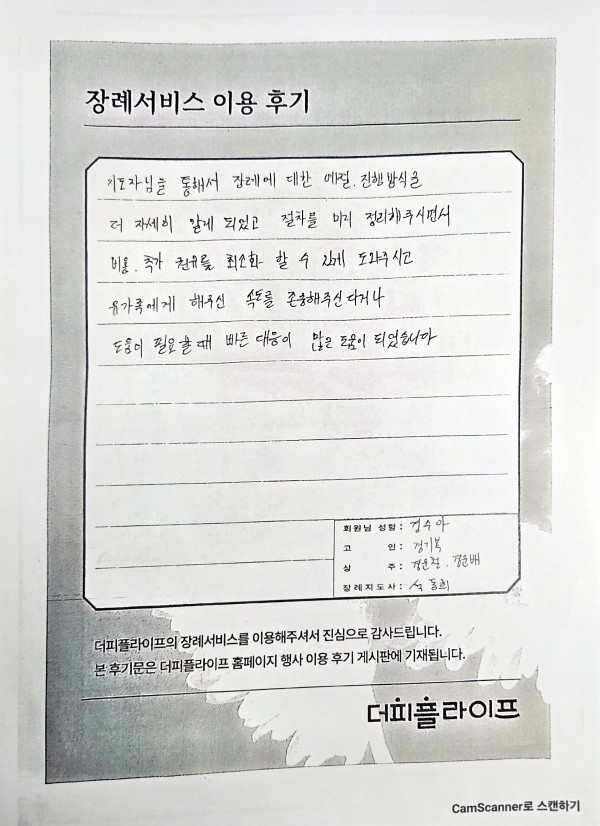 장례서비스 이용 후기
지도자님을 통해서 장례에 대한 예절, 진행방식을
더 자세히 알게 되었고 절차를 미리 정리해주시면서
비용, 추가 권유를 최소화 할 수 있게 도와주시고
유가족에게 해주신 속도를 존중해주신다거나
도움이 필요할때 빠른 대응이 많은 도움이 되었습니다
회원님 성함 : 경수아
고 인 : 경기복
상 주 : 경운철, 경운배
장례지도사 : 석
더피플라이프의 장례서비스를 이용해주셔서 진심으로 감사드립니다.
본 후기문은 더피플라이프 홈페이지 행사 이용 후기 게시판에 기재됩니다.
더피플라이프
CamScanner로 스캔하기